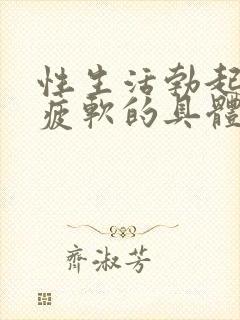 性生活勃起
疲軟的具體
齊淑芳